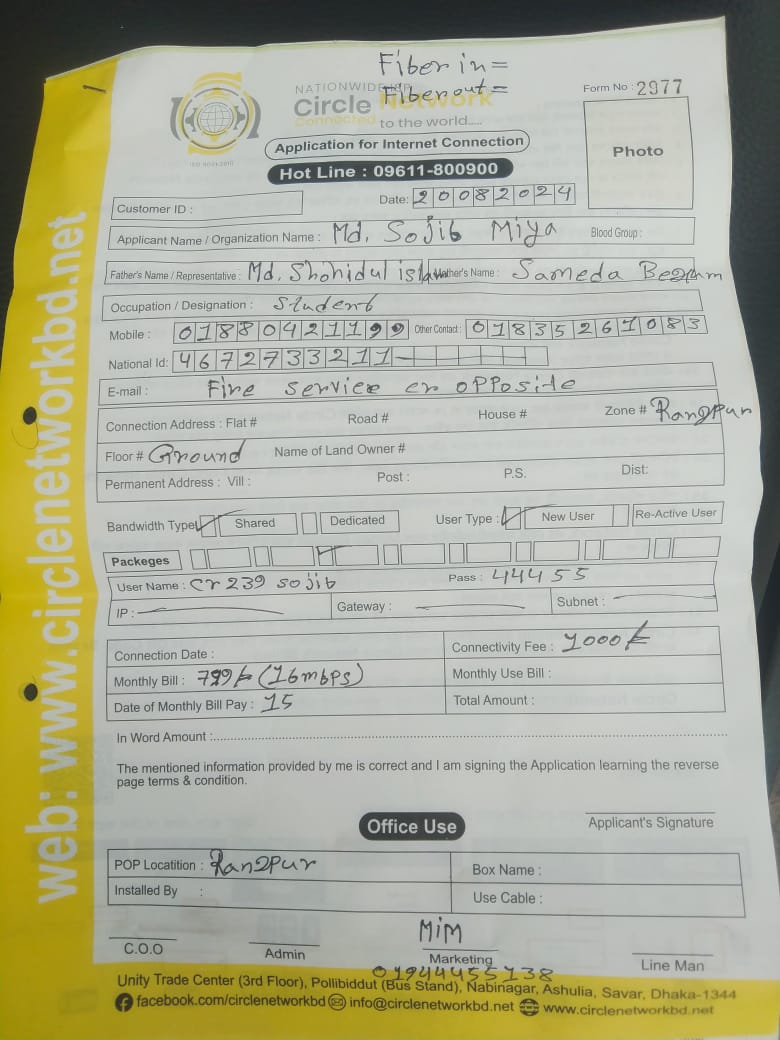 Fiber in =
Fiber out =
NATIONWIDE ISP
Circle Network
Connected to the world.....
ISO 9001:2015
Form No : 2977
Photo
Application for Internet Connection
Hot Line : 09611-800900
Customer ID :
Date: 20082024
Applicant Name / Organization Name : Md. Sojib Miya Blood Group :
Father's Name / Representative : Md. Shohidul islam Mother's Name : Sameda Begum
Occupation / Designation : Student
Mobile : 01880421199 Other Contact : 01835261083
National Id: 4672733211
E-mail : Fire service er opposide
Connection Address : Flat # Road # House # Zone # Rangpur
Floor # Ground Name of Land Owner #
Permanent Address : Vill : Post : P.S. Dist:
Bandwidth Type Shared Dedicated User Type : New User Re-Active User
Packeges
User Name : cr 239 sojib Pass : 44455
IP : Gateway : Subnet :
Connection Date : Connectivity Fee : 1000/-
Monthly Bill : 799/- (16mbps) Monthly Use Bill :
Date of Monthly Bill Pay : 15 Total Amount :
In Word Amount :
The mentioned information provided by me is correct and I am signing the Application learning the reverse
page terms & condition.
Office Use
Applicant's Signature
POP Locatition : Rangpur Box Name :
Installed By : Use Cable :
MiM
C.O.O Admin Marketing Line Man
01944455138
Unity Trade Center (3rd Floor), Pollibiddut (Bus Stand), Nabinagar, Ashulia, Savar, Dhaka-1344
facebook.com/circlenetworkbd info@circlenetworkbd.net www.circlenetworkbd.net
web: www.circlenetworkbd.net